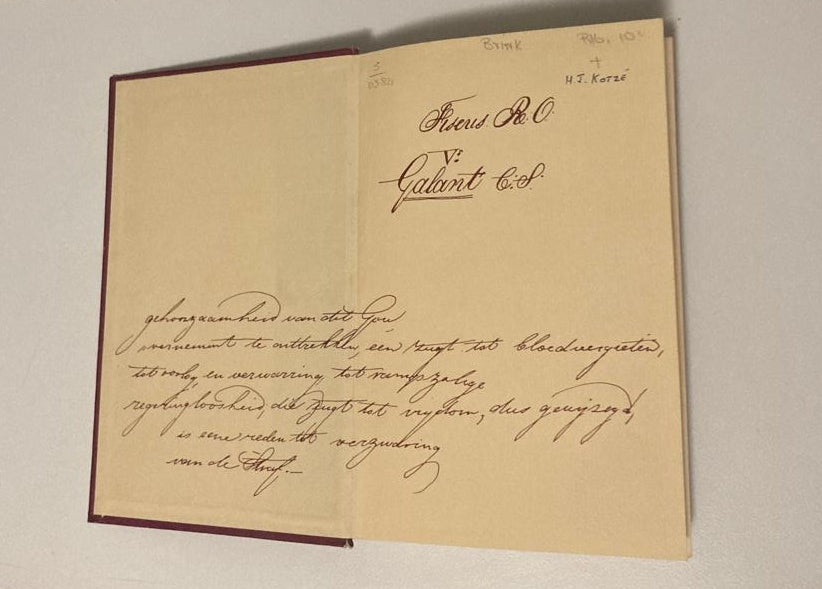 Brink
+
H.J. KOTZÉ
Fiscus R. O.
Vs
Galant C: S:
gehoorzaamheid van dit Gou
vernement te onttrekken, een zugt tot bloedvergieten,
tot oorlog, en verwarring tot rampzalige
regeringloosheid, die zugt tot vrydom, dus gewyzegd,
is eene reden tot verzwaring
van de Straf.—